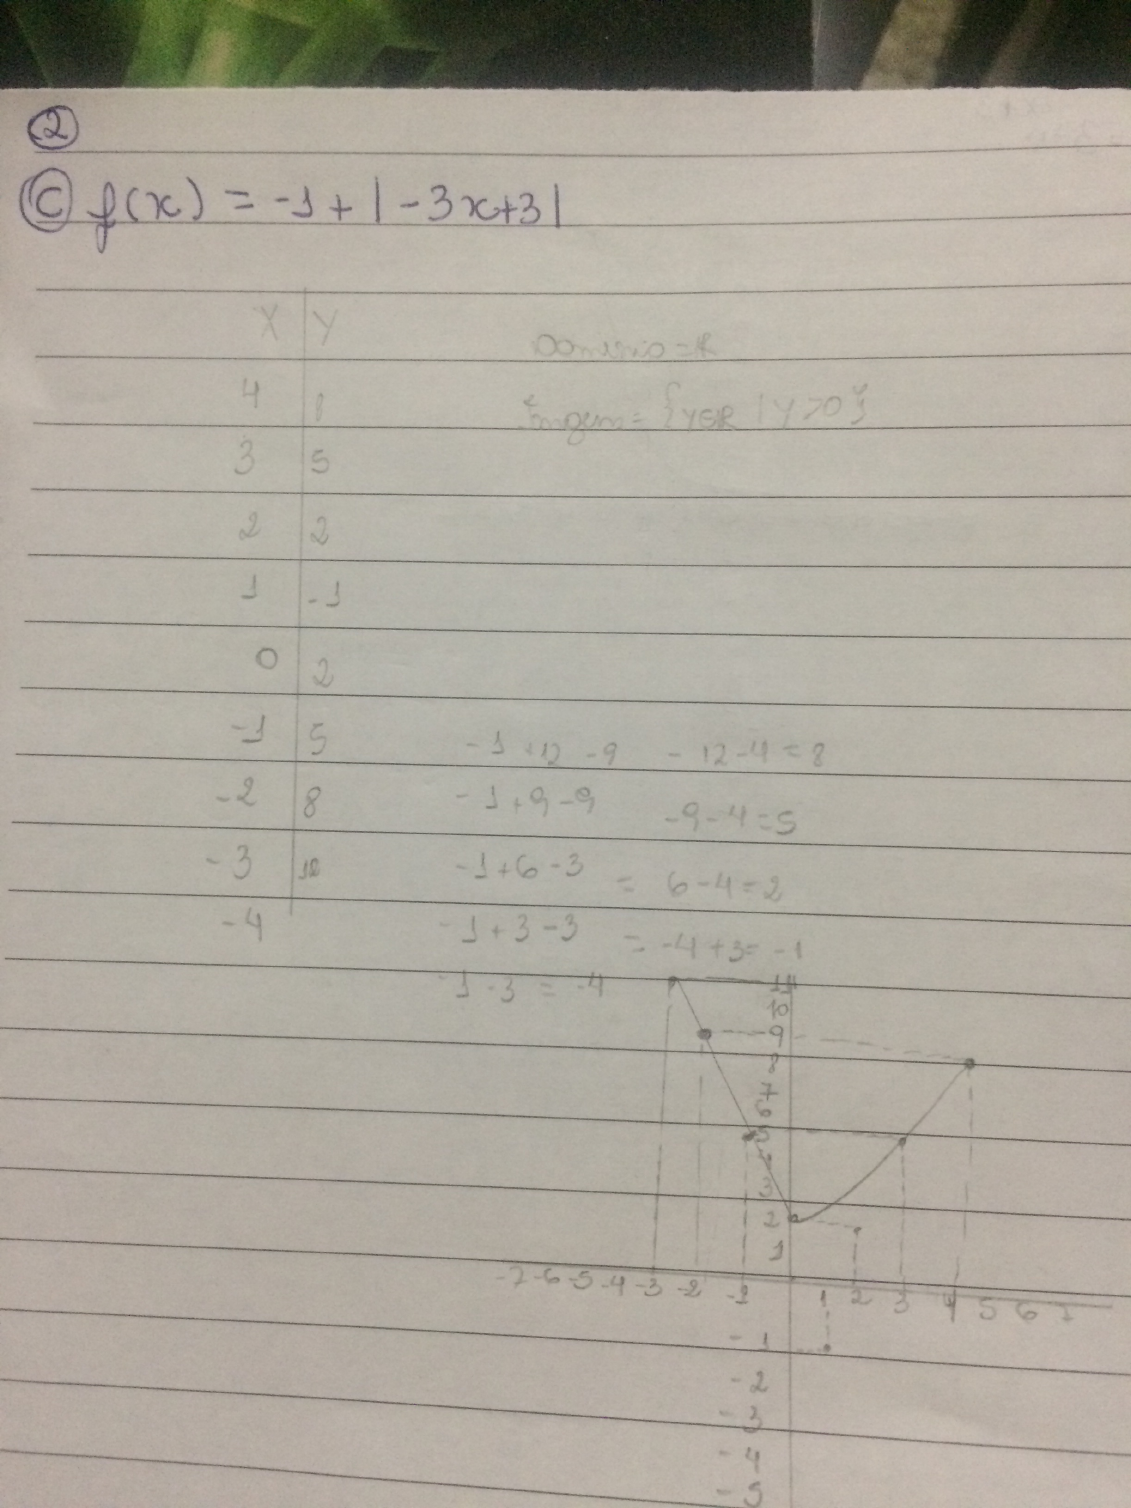 2
C f(x) = -1 + |-3x+3|
X Y
Dominio = R
4
Imagem = {y∈R | y>0}
3 5
2 2
1 -1
0 2
-1 5
-1 +12 -9 - 12-4=8
-2 8
-1+9-9 -9-4=5
-3
-1+6-3 = 6-4=2
-4
-1+3-3 = -4+3= -1
-1-3 = -4
11
10
9
8
7
6
5
4
3
2
1
-7 -6 -5 -4 -3 -2 -1 1 2 3 4 5 6 7
-1
-2
-3
-4
-5